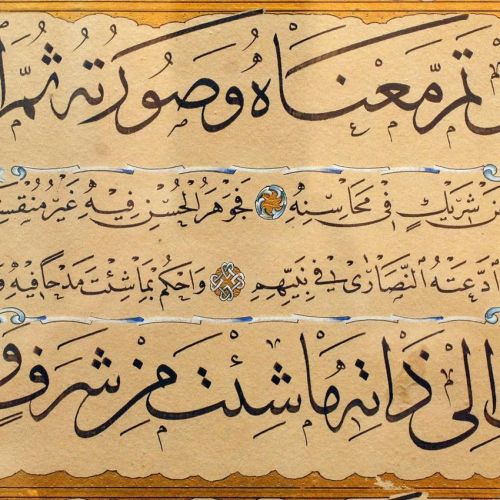 تَمَّ مَعْنَاهُ وَصُورَتُهُ ثُمَّ ا
عَنْ شَرِيكٍ فِي مَحَاسِنِهِ فَجَوْهَرُ الْحُسْنِ فِيهِ غَيْرُ مُنْقَسِ
ادَّعَتْهُ النَّصَارَى فِي نَبِيِّهِمِ وَاحْكُمْ بِمَا شِئْتَ مَدْحًا فِيهِ وَ
إِلَى ذَاتِهِ مَا شِئْتَ مِنْ شَرَفٍ وَ